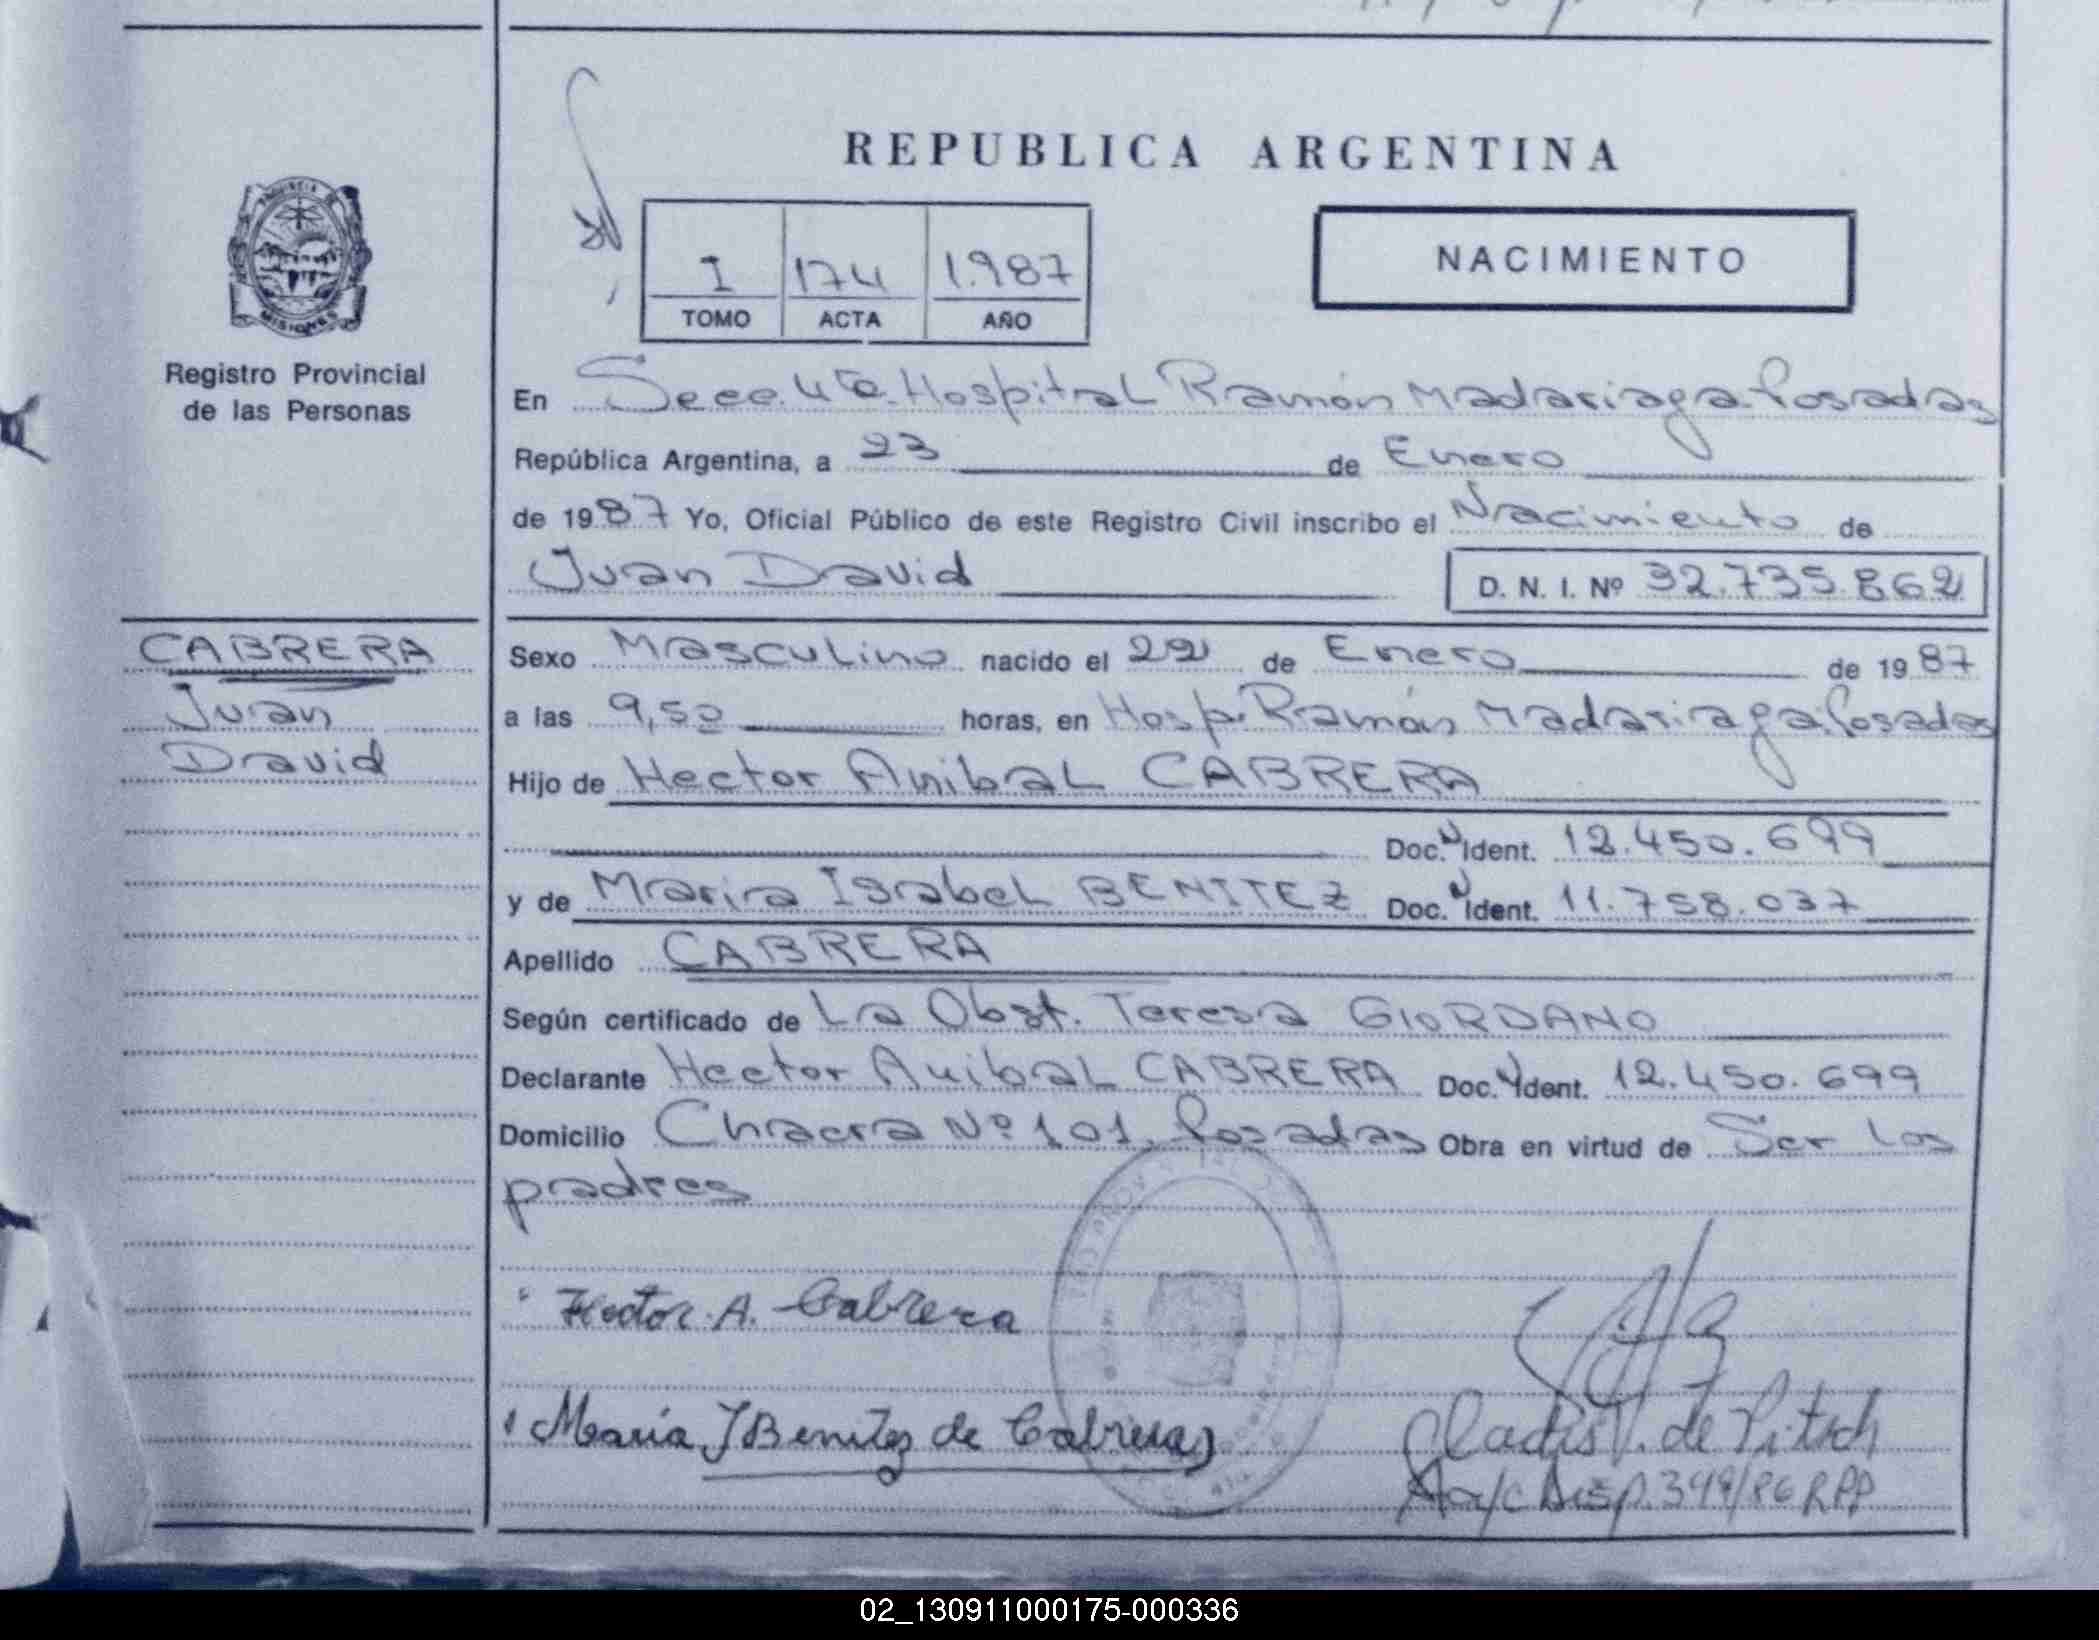 REPUBLICA ARGENTINA
MISIONES
Registro Provincial
de las Personas
I 174 1.987
TOMO ACTA AÑO
NACIMIENTO
En Secc. 4ta. Hospital Ramón Madariaga. Posadas
República Argentina, a 23 de Enero
de 1987 Yo, Oficial Público de este Registro Civil inscribo el Nacimiento de
Juan David D. N. I. Nº 32.735.862
CABRERA
Juan
David
Sexo Masculino nacido el 22 de Enero de 1987
a las 9,50 horas, en Hosp. Ramón Madariaga. Posadas
Hijo de Hector Anibal CABRERA
Doc. Ident. 12.450.699
y de Maria Isabel BENITEZ Doc. Ident. 11.758.037
Apellido CABRERA
Según certificado de La Obst. Teresa GIORDANO
Declarante Hector Anibal CABRERA Doc. Ident. 12.450.699
Domicilio Chacra Nº 101. Posadas Obra en virtud de Ser los
padres
Hector A. Cabrera
María I Benitez de Cabrera
Gladis V. de Pitsch
a/c Disp. 349/86 RPP
02_130911000175-000336